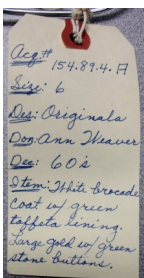 Acq# 154.89.4.A
Size: 6
Des: Originala
Don: Ann Weaver
Dec: 60's
Item: White brocade
coat w/ green
taffeta lining.
Large gold w/ green
stone buttons.